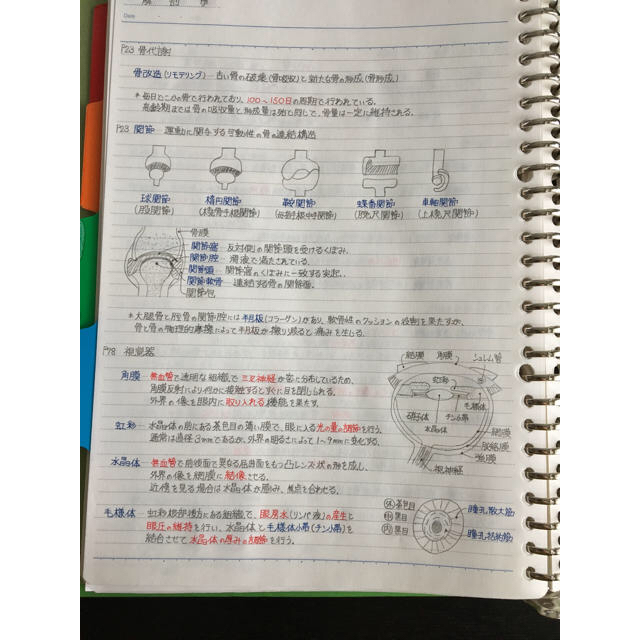 解剖学
Date
P23 骨代謝
骨改造(リモデリング) - 古い骨の破壊(骨吸収)と新たな骨の形成(骨形成)
*毎日どこかの骨で行われており、100〜150日の周期で行われている。
高齢期までは骨の吸収量と形成量は概ね同じで、骨量は一定に維持される。
P23 関節 - 運動に関与する可動性の骨の連結構造
球関節 楕円関節 鞍関節 蝶番関節 車軸関節
(股関節) (橈骨手根関節) (母指手根中手関節) (腕尺関節) (上橈尺関節)
骨膜
関節窩 反対側の関節頭を受けるくぼみ。
関節腔 - 滑液で満たされている。
関節頭 関節窩のくぼみに一致する突起。
関節軟骨 連結する骨の関節面。
関節包
*大腿骨と脛骨の関節腔には半月板(コラーゲン)があり、軟骨性のクッションの役割を果たすが、
骨と骨の物理的摩擦によって半月板が擦り減ると痛みを生じる。
P78 視覚器
角膜 - 無血管で透明な組織で三叉神経が密に分布しているため、
角膜反射により何かに接触するとすぐに目を閉じられる。
外界の像を眼内に取り入れる機能を果たす。
虹彩 - 水晶体の前にある茶色目の薄い膜で、眼に入る光の量の調節を行う。
通常は直径3mmであるが、外界の明るさによって1〜9mmに変化する。
水晶体 - 無血管で前後面で異なる屈曲面をもつ凸レンズ状の形を成し、
外界の像を網膜に結像させる。
近傍を見る場合は水晶体が膨み、焦点を合わせる。
毛様体 - 虹彩根部後方にある組織で、眼房水(リンパ液)の産生と
眼圧の維持を行い、水晶体と毛様体小帯(チン小帯)を
結合させて水晶体の厚みの調節を行う。
結膜 角膜 シュレム管
虹彩
毛様体
硝子体 チン小帯
水晶体
網膜
脈絡膜
強膜
視神経
茶色目
黒目
黒目
瞳孔散大筋
瞳孔括約筋